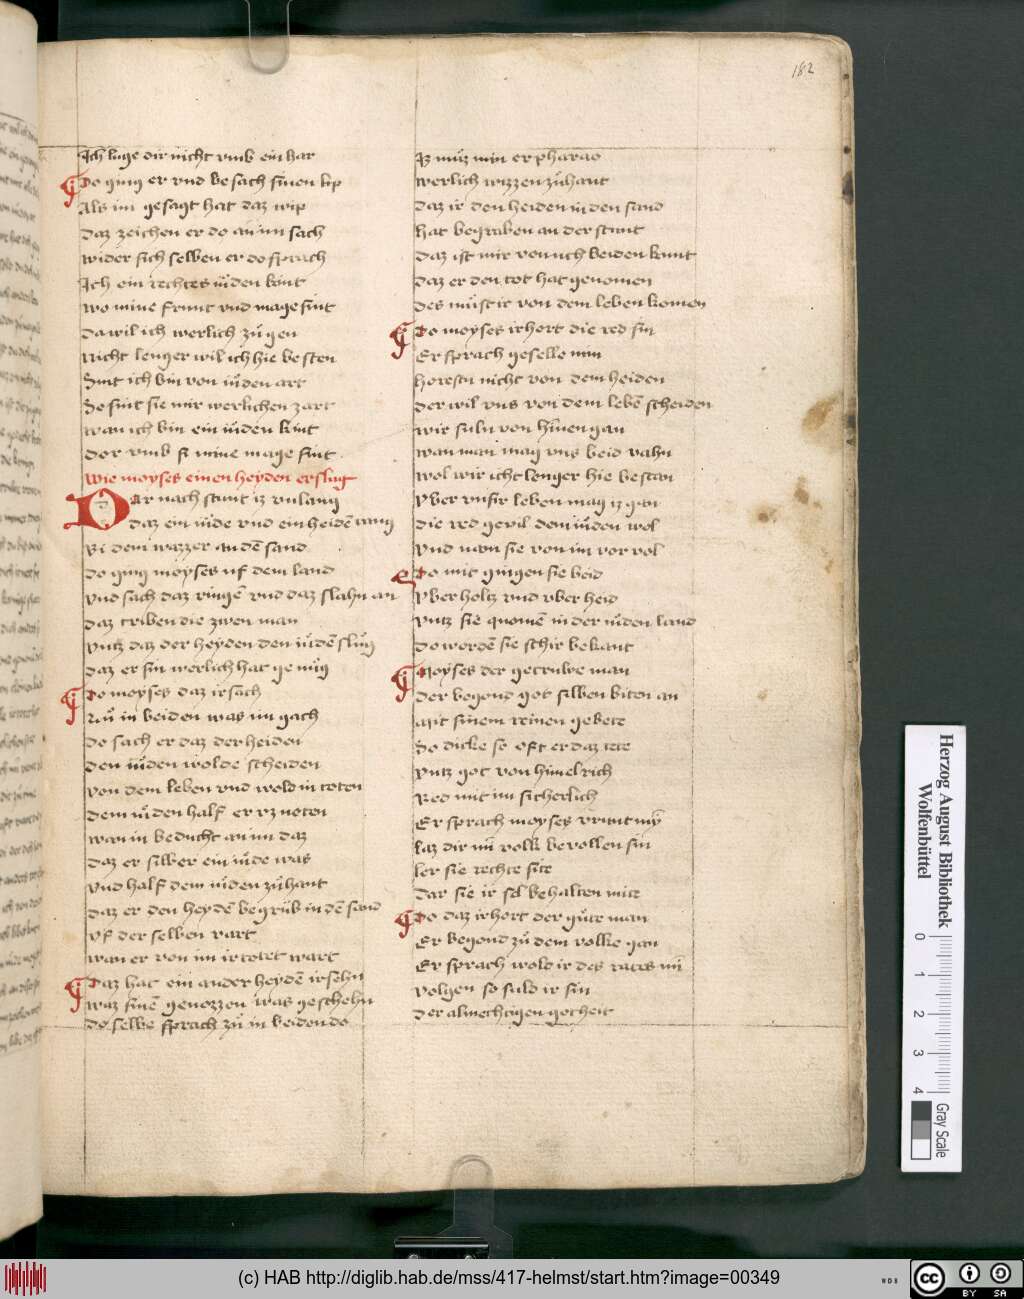 182
Ich luge dir nicht vmb ein har
Do ging er vnd besach sinen lip
Als im gesagt hat daz wip
Daz zeichen er do an im sach
Wider sich selben er do sprach
Ich ein rechtes iuden kint
Wo mine frunt vnd mage sint
Da wil ich werlich zů gen
Nicht lenger wil ich hie besten
Sint ich bin von iuden art
So sint sie mir werlichen zart
Wan ich bin ein iuden kint
Dor vmb si mine mage sint
Wie moyses einen heyden erslug
Dar nach stunt iz vnlang
Daz ein iude vnd ein heidē rang
Bi dem wazzer an dē sand
Do ging moyses uf dem land
Vnd sach daz ringē vnd daz slahn an
Daz triben die zwen man
Vntz daz der heyden den iudē slůg
Daz er sin werlich hat genůg
Do moyses daz irsach
Nů in beiden was im gach
Do sach er daz der heiden
Den iuden wolde scheiden
Von dem leben vnd wold in toten
Dem iuden half er vz noten
Wan in beducht an im daz
Daz er silber ein iude was
Vnd half dem iuden zůhant
Daz er den heydē begrůb in dē sand
Vf der selben vart
Wan er von im irtotet wart
Daz hat ein ander heydē irsehn
Waz sinē genozzen was geschehn
Do selbe sprach zů in beiden do
Iz můz min er pharao
Werlich wizzen zůhant
Daz ir den heiden in den sand
Hat begraben an der stunt
Daz ist mir von uch beiden kunt
Daz er den tot hat genomen
Des můst ir von dem leben komen
Do moyses irhort die red sin
Er sprach geselle min
Horestu nicht von dem heiden
Der wil vns von dem lebē scheiden
Wir suln von hinnen gan
Wan man mag vns beid vahn
Wol wir icht lenger hie bestan
Vber vnsir leben mag iz gan
Die red gevil dem iuden wol
Vnd nam sie von im vor vol
Do mit gingen sie beid
Vber holtz vnd vber heid
Vntz sie quomē in der iuden land
Do wordē sie schir bekant
Moyses der getruwe man
Der begond got silben biten an
Mit sinem reinen gebete
So dicke so oft er daz tete
Vntz got von himelrich
Red mit im sicherlich
Er sprach moyses vrunt mȳ
Laz dir mī volk bevollen sin
Ler sie rechte site
Dar sie ir sel behalten mite
Do daz irhort der gůte man
Er begond zů dem volke gan
Er sprach wold ir des rates mī
Volgen so suld ir sin
Der almechtigen gotheit
Herzog August Bibliothek
Wolfenbüttel
0 1 2 3 4
Gray Scale
(c) HAB http://diglib.hab.de/mss/417-helmst/start.htm?image=00349
WDB
cc BY SA